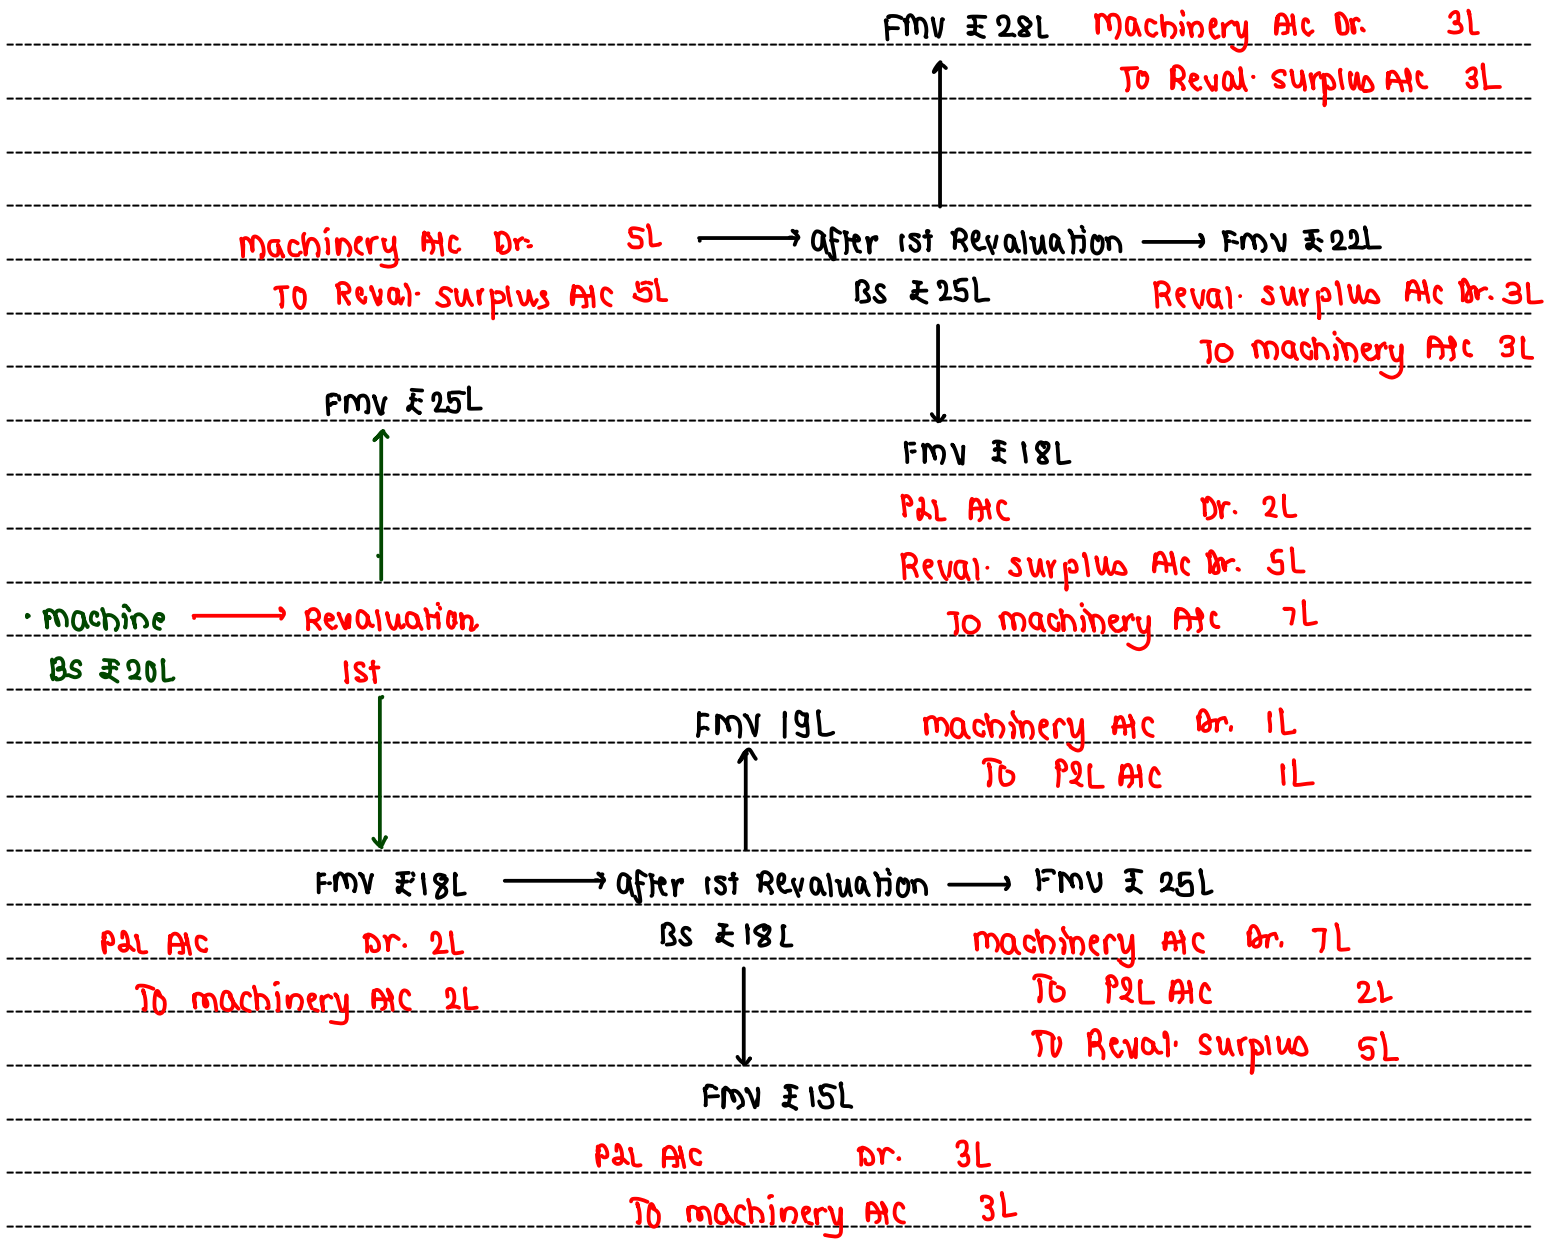 FMV ₹28L Machinery A/c Dr. 3L
To Reval. surplus A/c 3L
Machinery A/c Dr. 5L → after 1st Revaluation → FMV ₹22L
To Reval. surplus A/c 5L BS ₹25L Reval. surplus A/c Dr. 3L
To machinery A/c 3L
FMV ₹25L
FMV ₹18L
P&L A/c Dr. 2L
Reval. surplus A/c Dr. 5L
• machine → Revaluation To machinery A/c 7L
BS ₹20L 1st
FMV 19L machinery A/c Dr. 1L
To P&L A/c 1L
FMV ₹18L → after 1st Revaluation → FMV ₹25L
P&L A/c Dr. 2L BS ₹18L machinery A/c Dr. 7L
To machinery A/c 2L To P&L A/c 2L
To Reval. surplus 5L
FMV ₹15L
P&L A/c Dr. 3L
To machinery A/c 3L